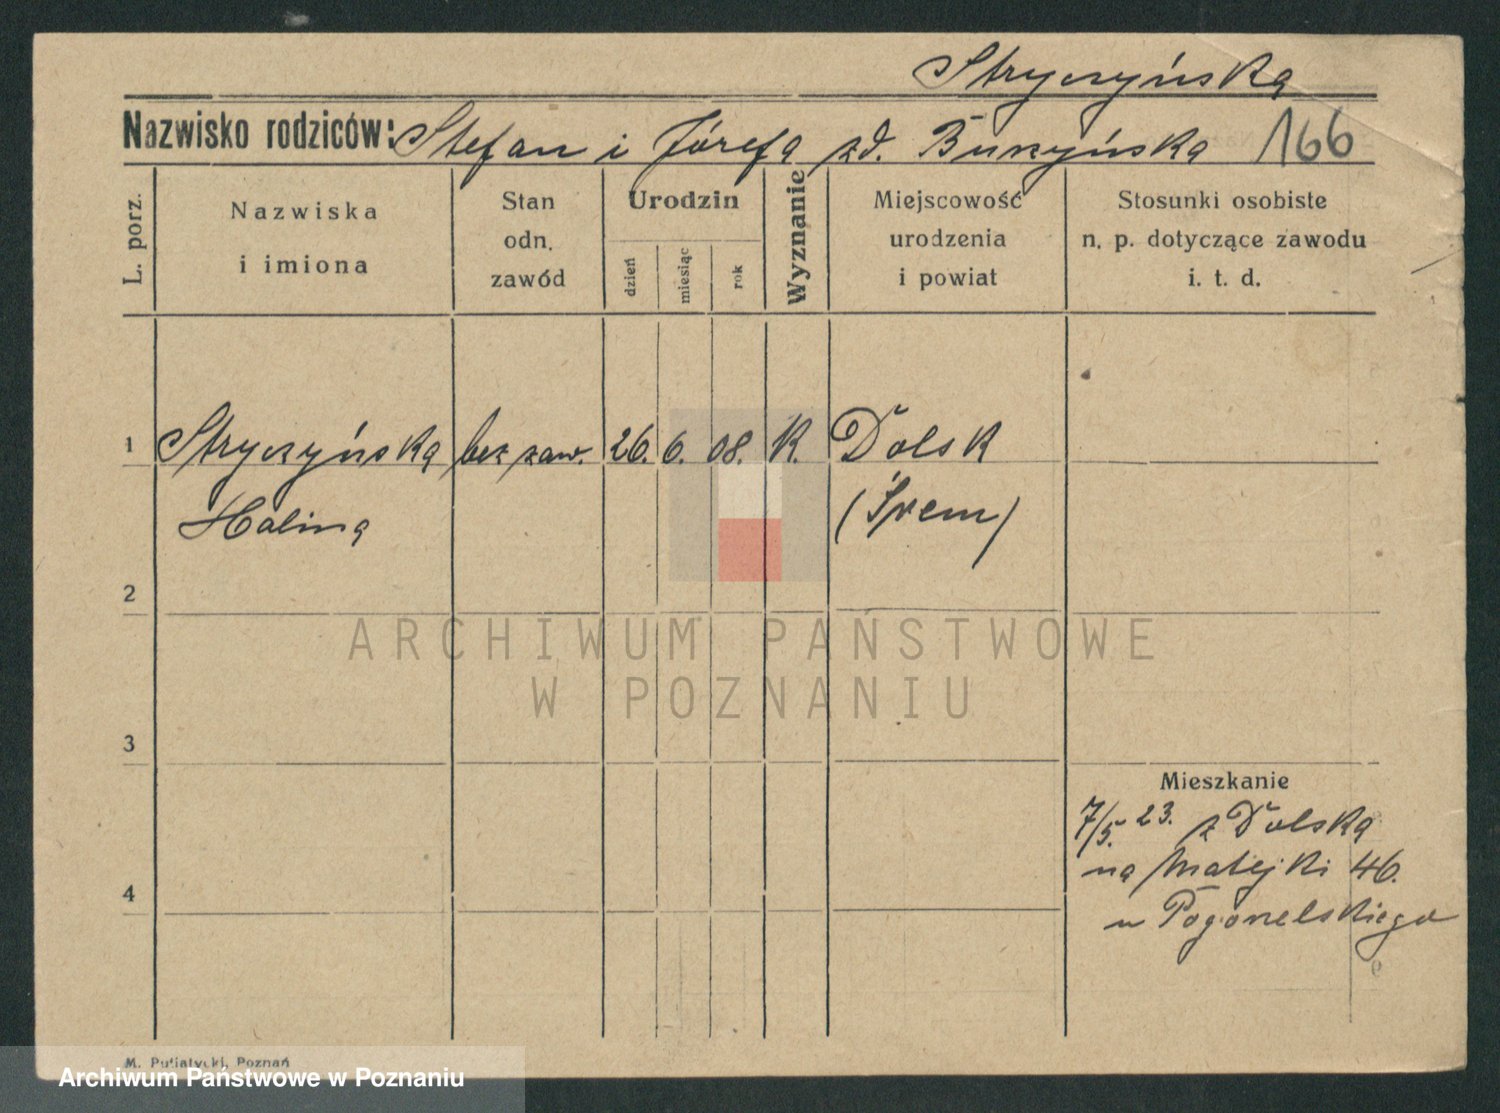 Stryczyńska
Nazwisko rodziców: Stefan i Józefa zd. Burzyńska 166
L. porz.
Nazwiska
i imiona
Stan
odn.
zawód
Urodzin
dzień
miesiąc
rok
Wyznanie
Miejscowość
urodzenia
i powiat
Stosunki osobiste
n. p. dotyczące zawodu
i. t. d.
1 Stryczyńska bez zaw. 26. 6. 08. K. Dolsk
Halina (Śrem)
2
ARCHIWUM PAŃSTWOWE
W POZNANIU
3
Mieszkanie
7/5. 23. z Dolska
na Matejki 46.
4
u Pogorzelskiego
M. Putiatycki, Poznań
Archiwum Państwowe w Poznaniu